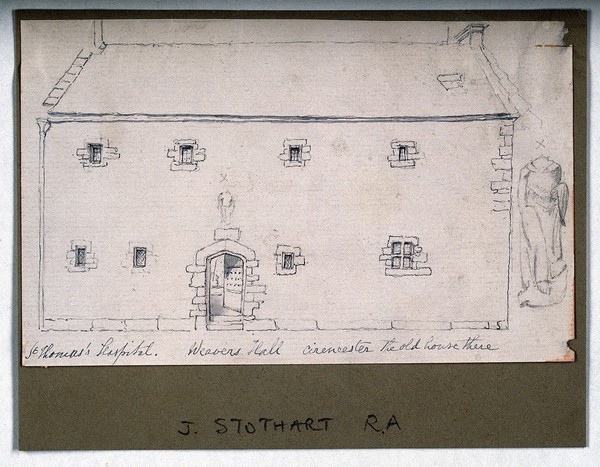 St Thomas's Hospital. Weavers Hall cirencester the old house there
J. STOTHART R.A